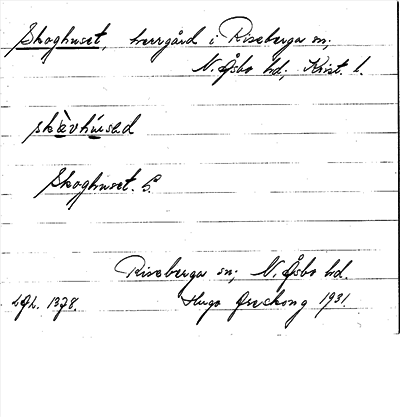 Skoghuset, herrgård i Riseberga sn;
N. Åsbo hd; Krist. l.
skævhúsəd
Skoghuset. G.
Riseberga sn; N. Åsbo hd.
Hugo Areskoug 1931.